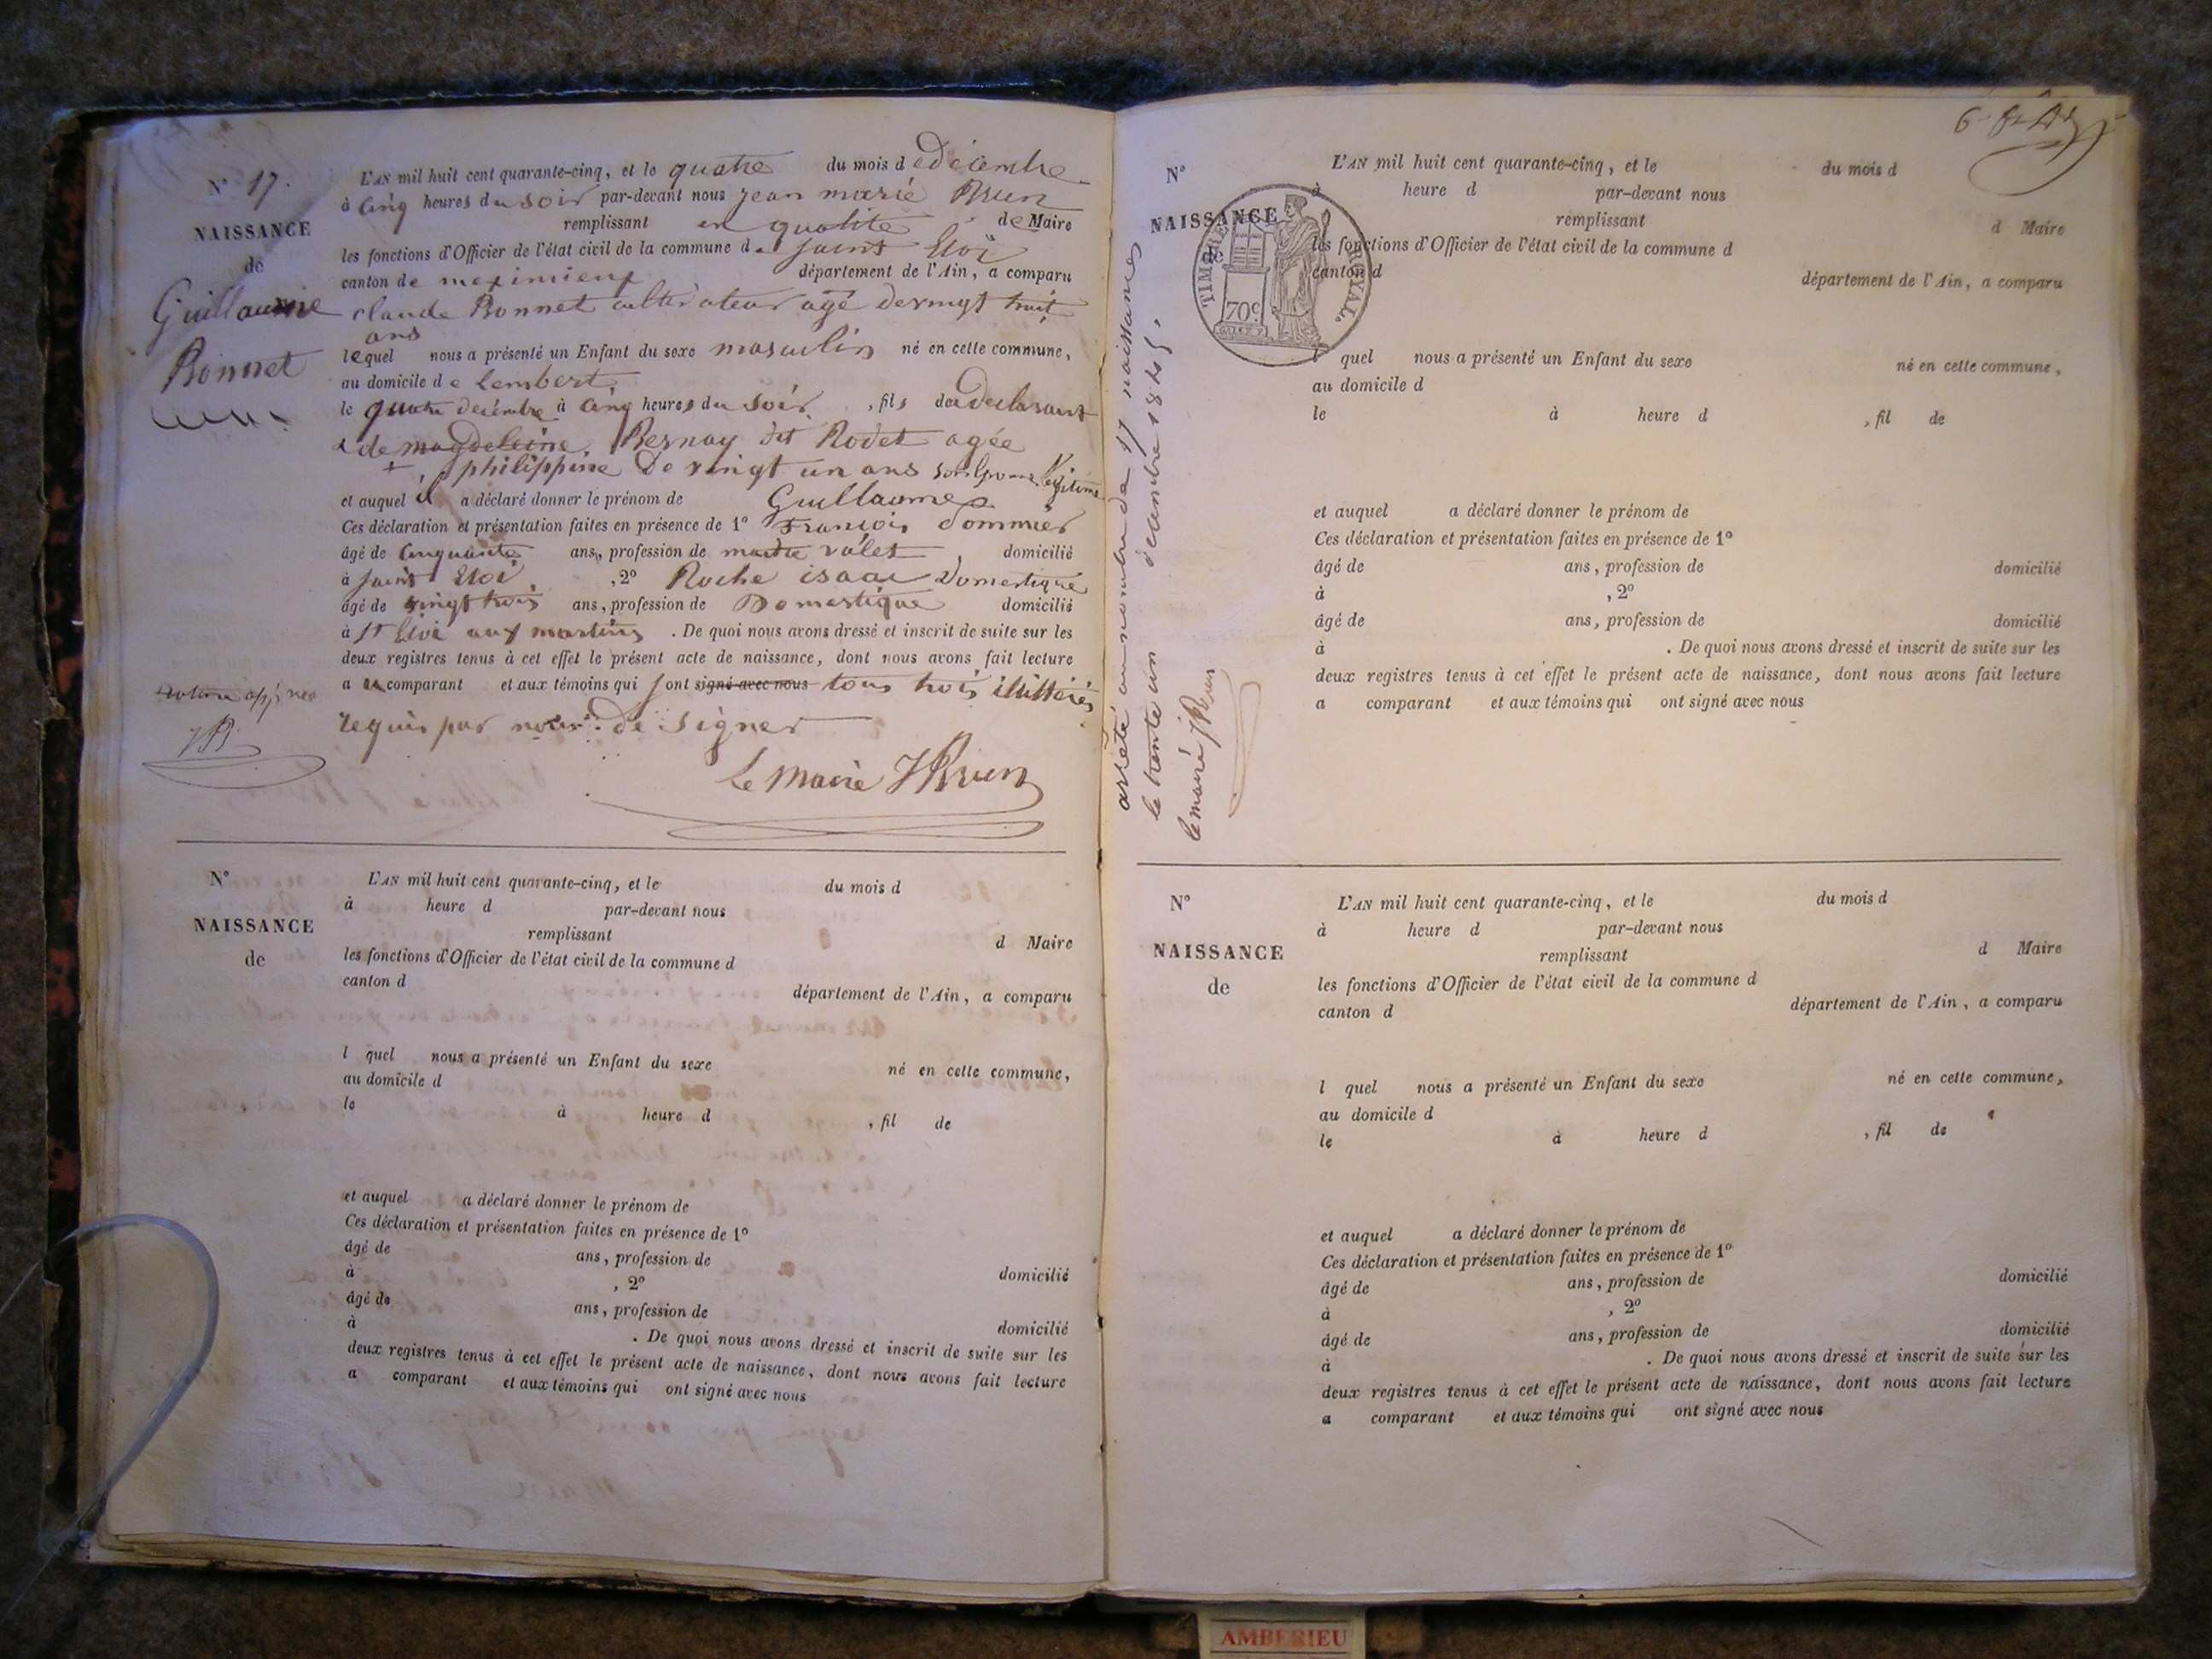 N° 17.
NAISSANCE
de
Guillaume
Bonnet
L'AN mil huit cent quarante-cinq, et le quatre du mois d e décembre
à Cinq heures du soir par-devant nous jean marie Brun
remplissant en qualité de Maire
les fonctions d'Officier de l'état civil de la commune d e saint Eloi
canton de meximieux département de l'Ain, a comparu
claude Bonnet cultivateur agé de vingt huit
ans
lequel nous a présenté un Enfant du sexe masculin né en cette commune,
au domicile d e lembert
le quatre decembre à cinq heures du soir , fils du declarant
& de magdeleine Bernay dit Rodet agée
+ philippine de vingt un ans son épouse légitime
et auquel il a déclaré donner le prénom de Guillaume
Ces déclaration et présentation faites en présence de 1° François Dommier
âgé de cinquante ans, profession de maitre valet , domicilié
à saint Eloi , 2° Roche isaac Domestique
âgé de vingt trois ans, profession de Domestique domicilié
à St Eloi aux martins . De quoi nous avons dressé et inscrit de suite sur les
deux registres tenus à cet effet le présent acte de naissance, dont nous avons fait lecture
a u comparant et aux témoins qui sont signé avec nous tous trois illittérés
requis par nous de signer
JB
Le Maire JBrun
N°
NAISSANCE
de
L'AN mil huit cent quarante-cinq, et le du mois d
à heure d par-devant nous
remplissant d Maire
les fonctions d'Officier de l'état civil de la commune d
canton d département de l'Ain, a comparu
l quel nous a présenté un Enfant du sexe né en cette commune,
au domicile d
le à heure d , fil de
et auquel a déclaré donner le prénom de
Ces déclaration et présentation faites en présence de 1°
âgé de ans, profession de domicilié
à , 2°
âgé de ans, profession de domicilié
à . De quoi nous avons dressé et inscrit de suite sur les
deux registres tenus à cet effet le présent acte de naissance, dont nous avons fait lecture
a comparant et aux témoins qui ont signé avec nous
arreté au nombre de 17 naissances
le trente un décembre 1845.
le maire JBrun
N°
NAISSANCE
de
TIMBRE ROYAL.
70c.
L'AN mil huit cent quarante-cinq, et le du mois d
à heure d par-devant nous
remplissant d Maire
les fonctions d'Officier de l'état civil de la commune d
canton d département de l'Ain, a comparu
l quel nous a présenté un Enfant du sexe né en cette commune,
au domicile d
le à heure d , fil de
et auquel a déclaré donner le prénom de
Ces déclaration et présentation faites en présence de 1°
âgé de ans, profession de domicilié
à , 2°
âgé de ans, profession de domicilié
à . De quoi nous avons dressé et inscrit de suite sur les
deux registres tenus à cet effet le présent acte de naissance, dont nous avons fait lecture
a comparant et aux témoins qui ont signé avec nous
N°
NAISSANCE
de
L'AN mil huit cent quarante-cinq, et le du mois d
à heure d par-devant nous
remplissant d Maire
les fonctions d'Officier de l'état civil de la commune d
canton d département de l'Ain, a comparu
l quel nous a présenté un Enfant du sexe né en cette commune,
au domicile d
le à heure d , fil de
et auquel a déclaré donner le prénom de
Ces déclaration et présentation faites en présence de 1°
âgé de ans, profession de domicilié
à , 2°
âgé de ans, profession de domicilié
à . De quoi nous avons dressé et inscrit de suite sur les
deux registres tenus à cet effet le présent acte de naissance, dont nous avons fait lecture
a comparant et aux témoins qui ont signé avec nous
AMBERIEU